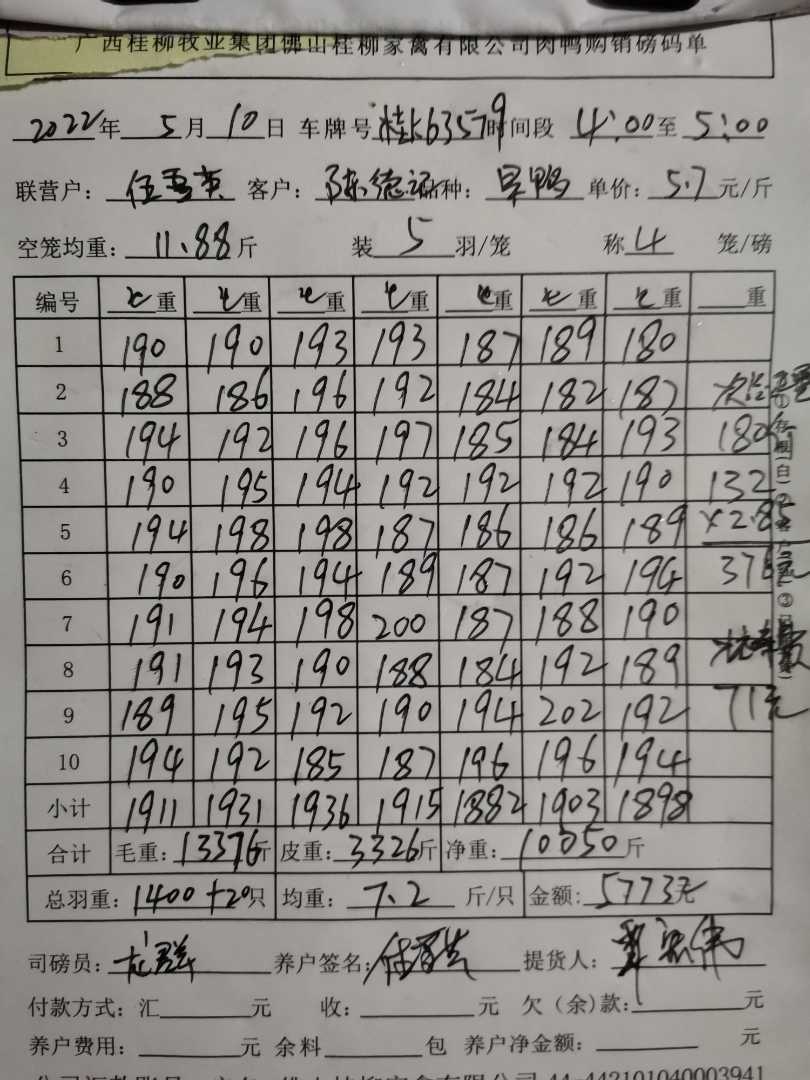 广西桂柳牧业集团佛山桂柳家禽有限公司肉鸭购销磅码单
2022年 5月 10日 车牌号 桂K63579 时间段 4:00至 5:00
联营户: 客户: 陈德 品种: 旱鸭 单价: 5.7元/斤
空笼均重: 11.88斤 装 5 羽/笼 称 4 笼/磅
编号 重 重 重 重 重 重 重 重
1 190 190 193 193 187 189 180
2 188 186 196 192 184 182 187
3 194 192 196 197 185 184 193 180
4 190 195 194 192 192 192 190 132
5 194 198 198 187 186 186 189 ×2.85
6 190 196 194 189 187 192 194 376元
7 191 194 198 200 187 188 190
8 191 193 190 188 184 192 189
9 189 195 192 190 194 202 192 71元
10 194 192 185 187 196 196 194
小计 1911 1931 1936 1915 1882 1903 1898
合计 毛重: 13376斤 皮重: 3326斤 净重: 10050斤
总羽重: 1400+20只 均重: 7.2 斤/只 金额: 5773元
司磅员: 养户签名: 提货人:
付款方式: 汇 元 收: 元 欠(余)款: 元
养户费用: 元 余料 包 养户净金额: 元